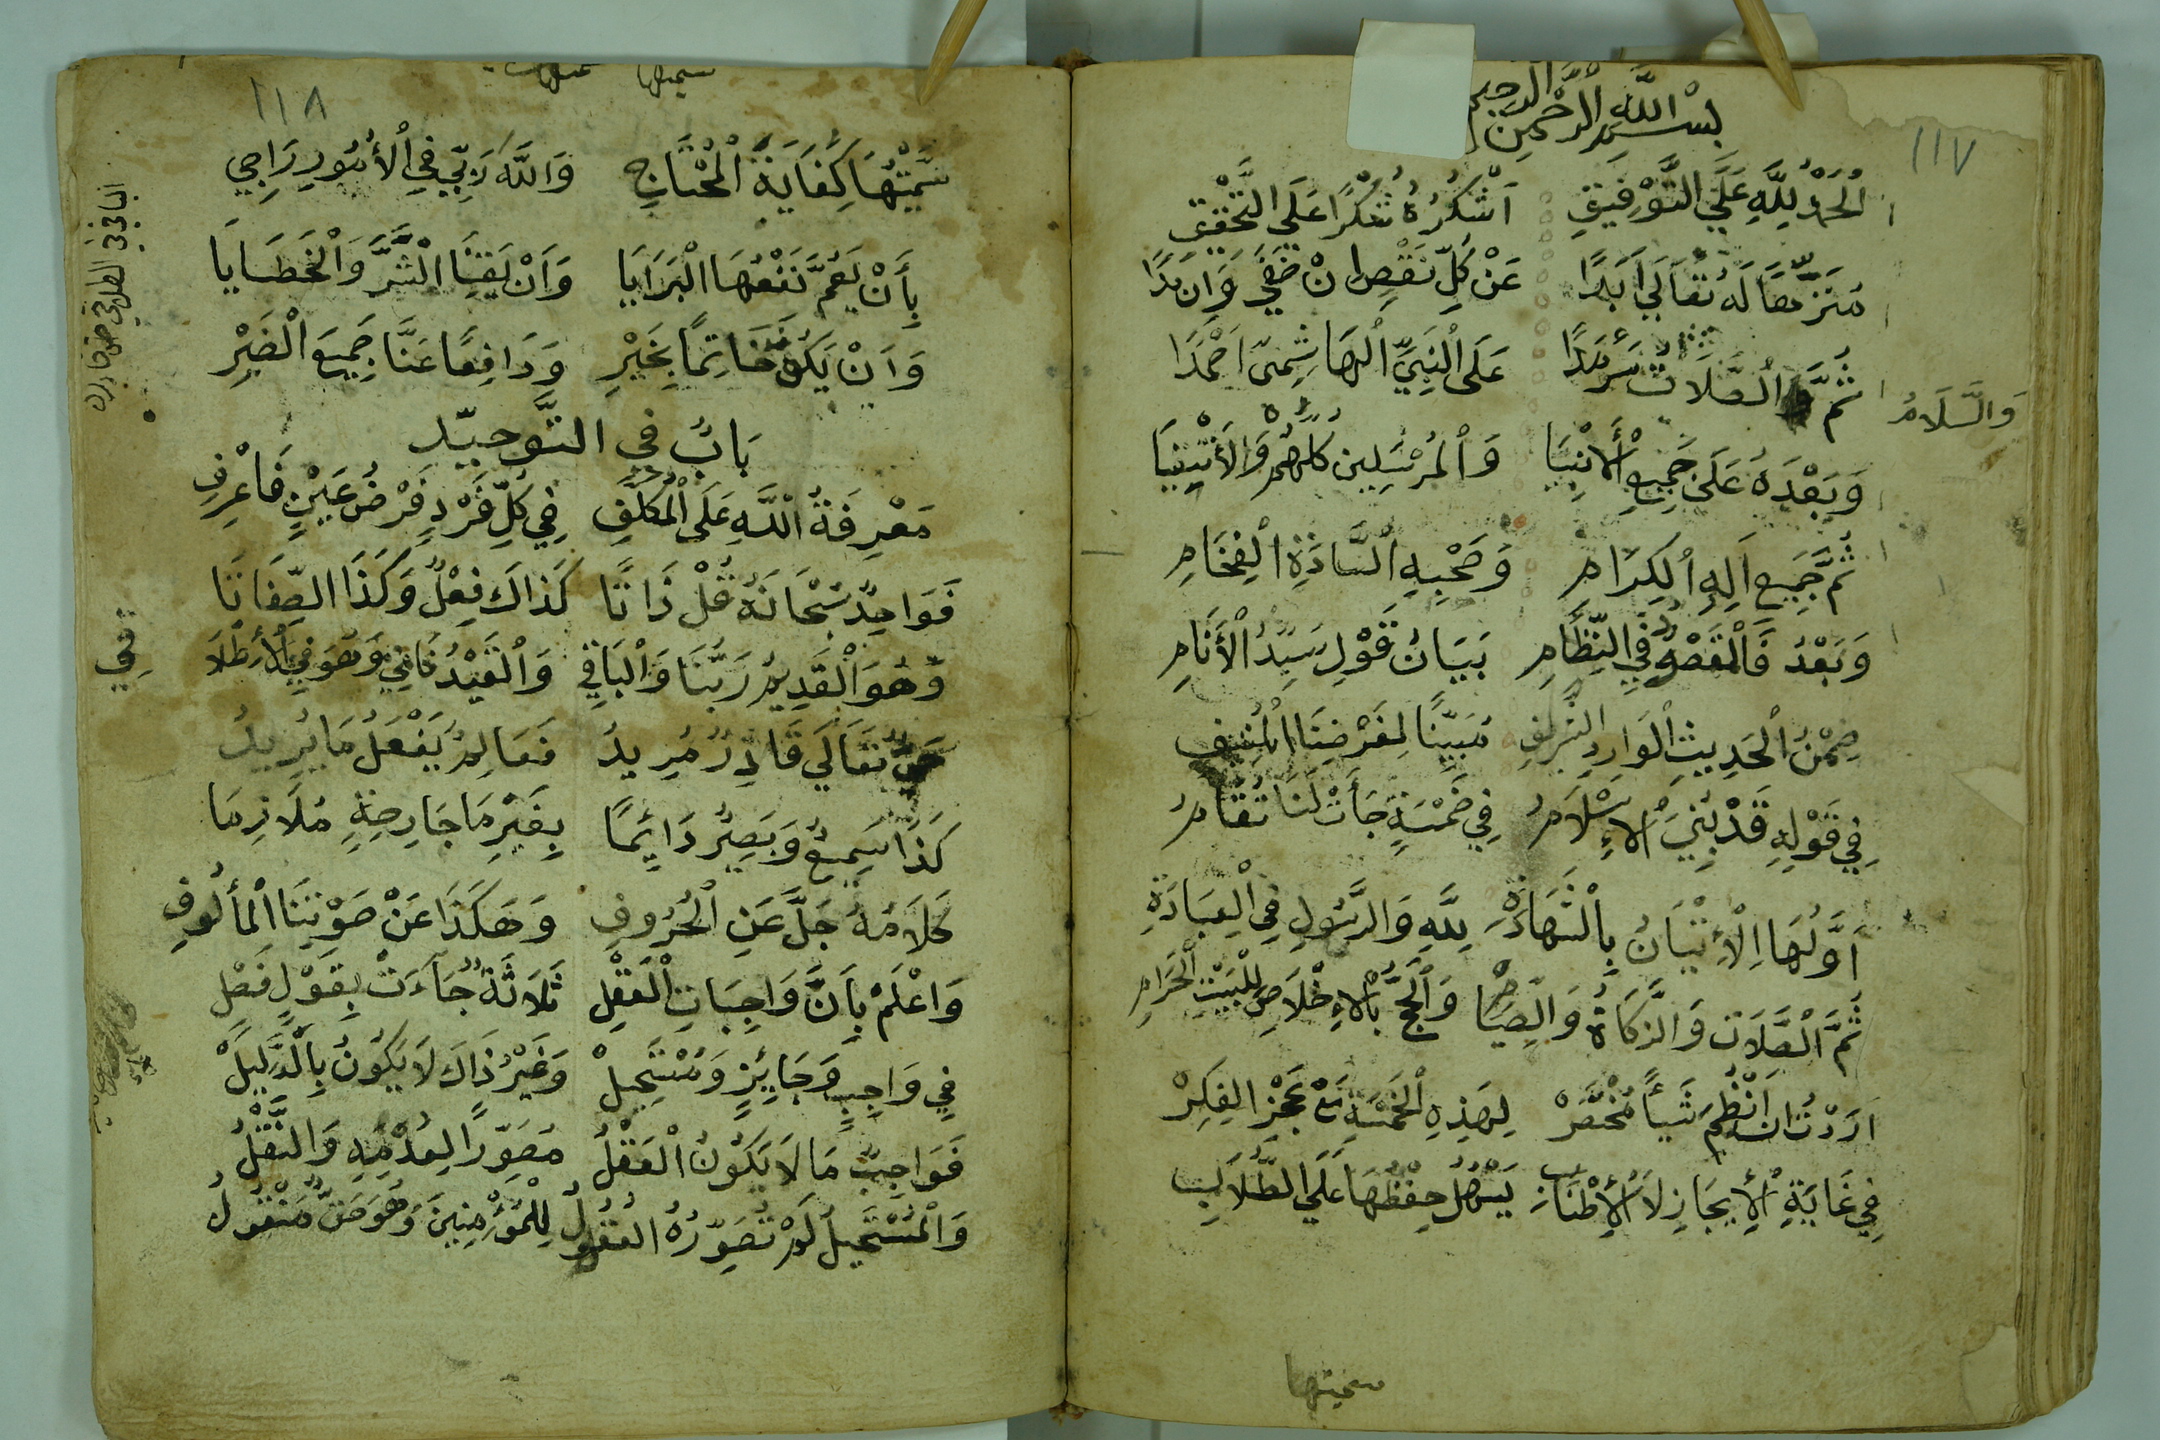 ١١٧
بِسْمِ اللّٰهِ الرَّحْمٰنِ الرَّحِيمِ
اَلْحَمْدُ لِلَّهِ عَلَي التَّوْفِيقِ اَشْكُرُهُ شُكْرًا عَلَي التَّحْقِيقِ
مُنَزِّهًا لَهُ تَعَالَي اَبَدًا عَنْ كُلِّ نَقْصٍ اِنْ خَفَي وَاِنْ بَدَا
ثُمَّ الصَّلَاتُ سَرْمَدًا عَلَى النَّبِيِّ الْهَاشِمِيّ اَحْمَدَا
وَالسَّلَامُ
وَبَعْدَهُ عَلَى جَمِيعِ الْأَنْبِيَا وَالْمُرْسَلِين كُلِّهُمْ وَالْأَتْقِيَا
ثُمَّ جَمِيعِ آلِهِ الْكِرَامِ وَصَحْبِهِ السَّادَةِ الْفِخَامِ
وَبَعْدُ فَالْقَصْدُ فِي النِّظَامِ بَيَانُ قَوْلِ سَيِّدِ الْأَنَامِ
ضِمْنُ الْحَدِيثِ الْوَارِدِ الشَّرِيفِ مُبَيِّنًا لِفَرْضِنَا الْمُنِيفِ
فِي قَوْلِهِ قَدْ بُنِيَ الْإِسْلَامُ فِي خَمْسَةٍ جَأَتْ لَنَا تُقَامُ
اَوَّلُهَا الْإِتْيَانُ بِالشَّهَادَةِ لِلَّهِ وَالرَّسُولِ فِي الْعِبَادَةِ
ثُمَّ الصَّلَاتُ وَالزَّكَاةُ وَالصِّيَامُ وَالْحَجُّ بِالْإِخْلَاصِ لِلْبَيْتِ الْحَرَامِ
اَرَدْتُ اَنْ اَنْظِمَ شَيْأً مُخْتَصَرْ لِهَذِهِ الْخَمْسَةِ مَعْ عَجْزِ الفِكَرْ
فِي غَايَةِ الْإِيجَازِ لَا الْأِطْنَابِ يَسْهُلُ حِفْظُهَا عَلَي الطُّلَّابِ
سميتها
١١٨
سَمَّيْتُهَا كِفَايَةَ الْمُحْتَاجِ وَاللَّهَ رَبِّي فِي الْأُمُورِ رَاجِي
بِأَنْ يَعُمَّ نَفْعُهَا الْبَرَايَا وَاَنْ يَقِنَا الشَّرَّ وَالْخَطَايَا
وَاَنْ يَكُنْ خَاتِمًا بِخَيْرِ وَدَافِعًا عَنَّا جَمِيعَ الْضَيْرِ
بَابٌ فِي التَّوحِيّدِ
مَعْرِفَةُ اللَّهِ عَلَى الْمُكَلَّفِ فِي كُلِّ فَرْدٍ فَرْضُ عَيْنٍ فَاعْرِفِ
فَوَاحِدٌ سُبْحَانَهُ قُلْ ذَاتَا كَذَاكَ فِعْلٌ وَكَذَا الصِّفَاتَا
وَهُوَ الْقَدِيمُ رَبُّنَا وَالْبَاقِي وَالْقَيْدُ نَافِي وَهُوَ فِي الْأِطْلَا
قِي
حَيٌّ تَعَالَي قَادِرٌ مُرِيدُ فَعَالِمٌ يَفْعَلُ مَا يُرِيدُ
كَذَا سَمِيعٌ وَبَصِيرٌ دَائِمًا بِغَيْرِ مَا جَارِحَةٍ مُلَازِمَا
كَلَامُهُ جَلَّ عَنِ الْحُرُوفِ وَهَكَذَا عَنْ صَوْتِنَا الْمأْلُوفِ
وَاعْلَمْ بِاَنَّ وَاجِبَاتِ الْعَقْلِ ثَلَاثَةٌ جَآءَتْ بِقَوْلٍ فَصْلِ
فِي وَاجِبٍ وَجَايِزٍ وَمُسْتَحِيلْ وَغَيْرُ ذَاكَ لَا يَكُونُ بِالْدَّلِيلْ
فَوَاجِبٌ مَا لَا يَكُونُ الْعَقْلُ مُصَوِّرًا لِعُدْمِهِ وَالنَّقْلُ
وَالْمُسْتَحِيلُ لَمْ تُصَوِّرُهُ العُقُولُ لِلْمُؤْمِنِينَ وَهُوَ مَنْقُولُ